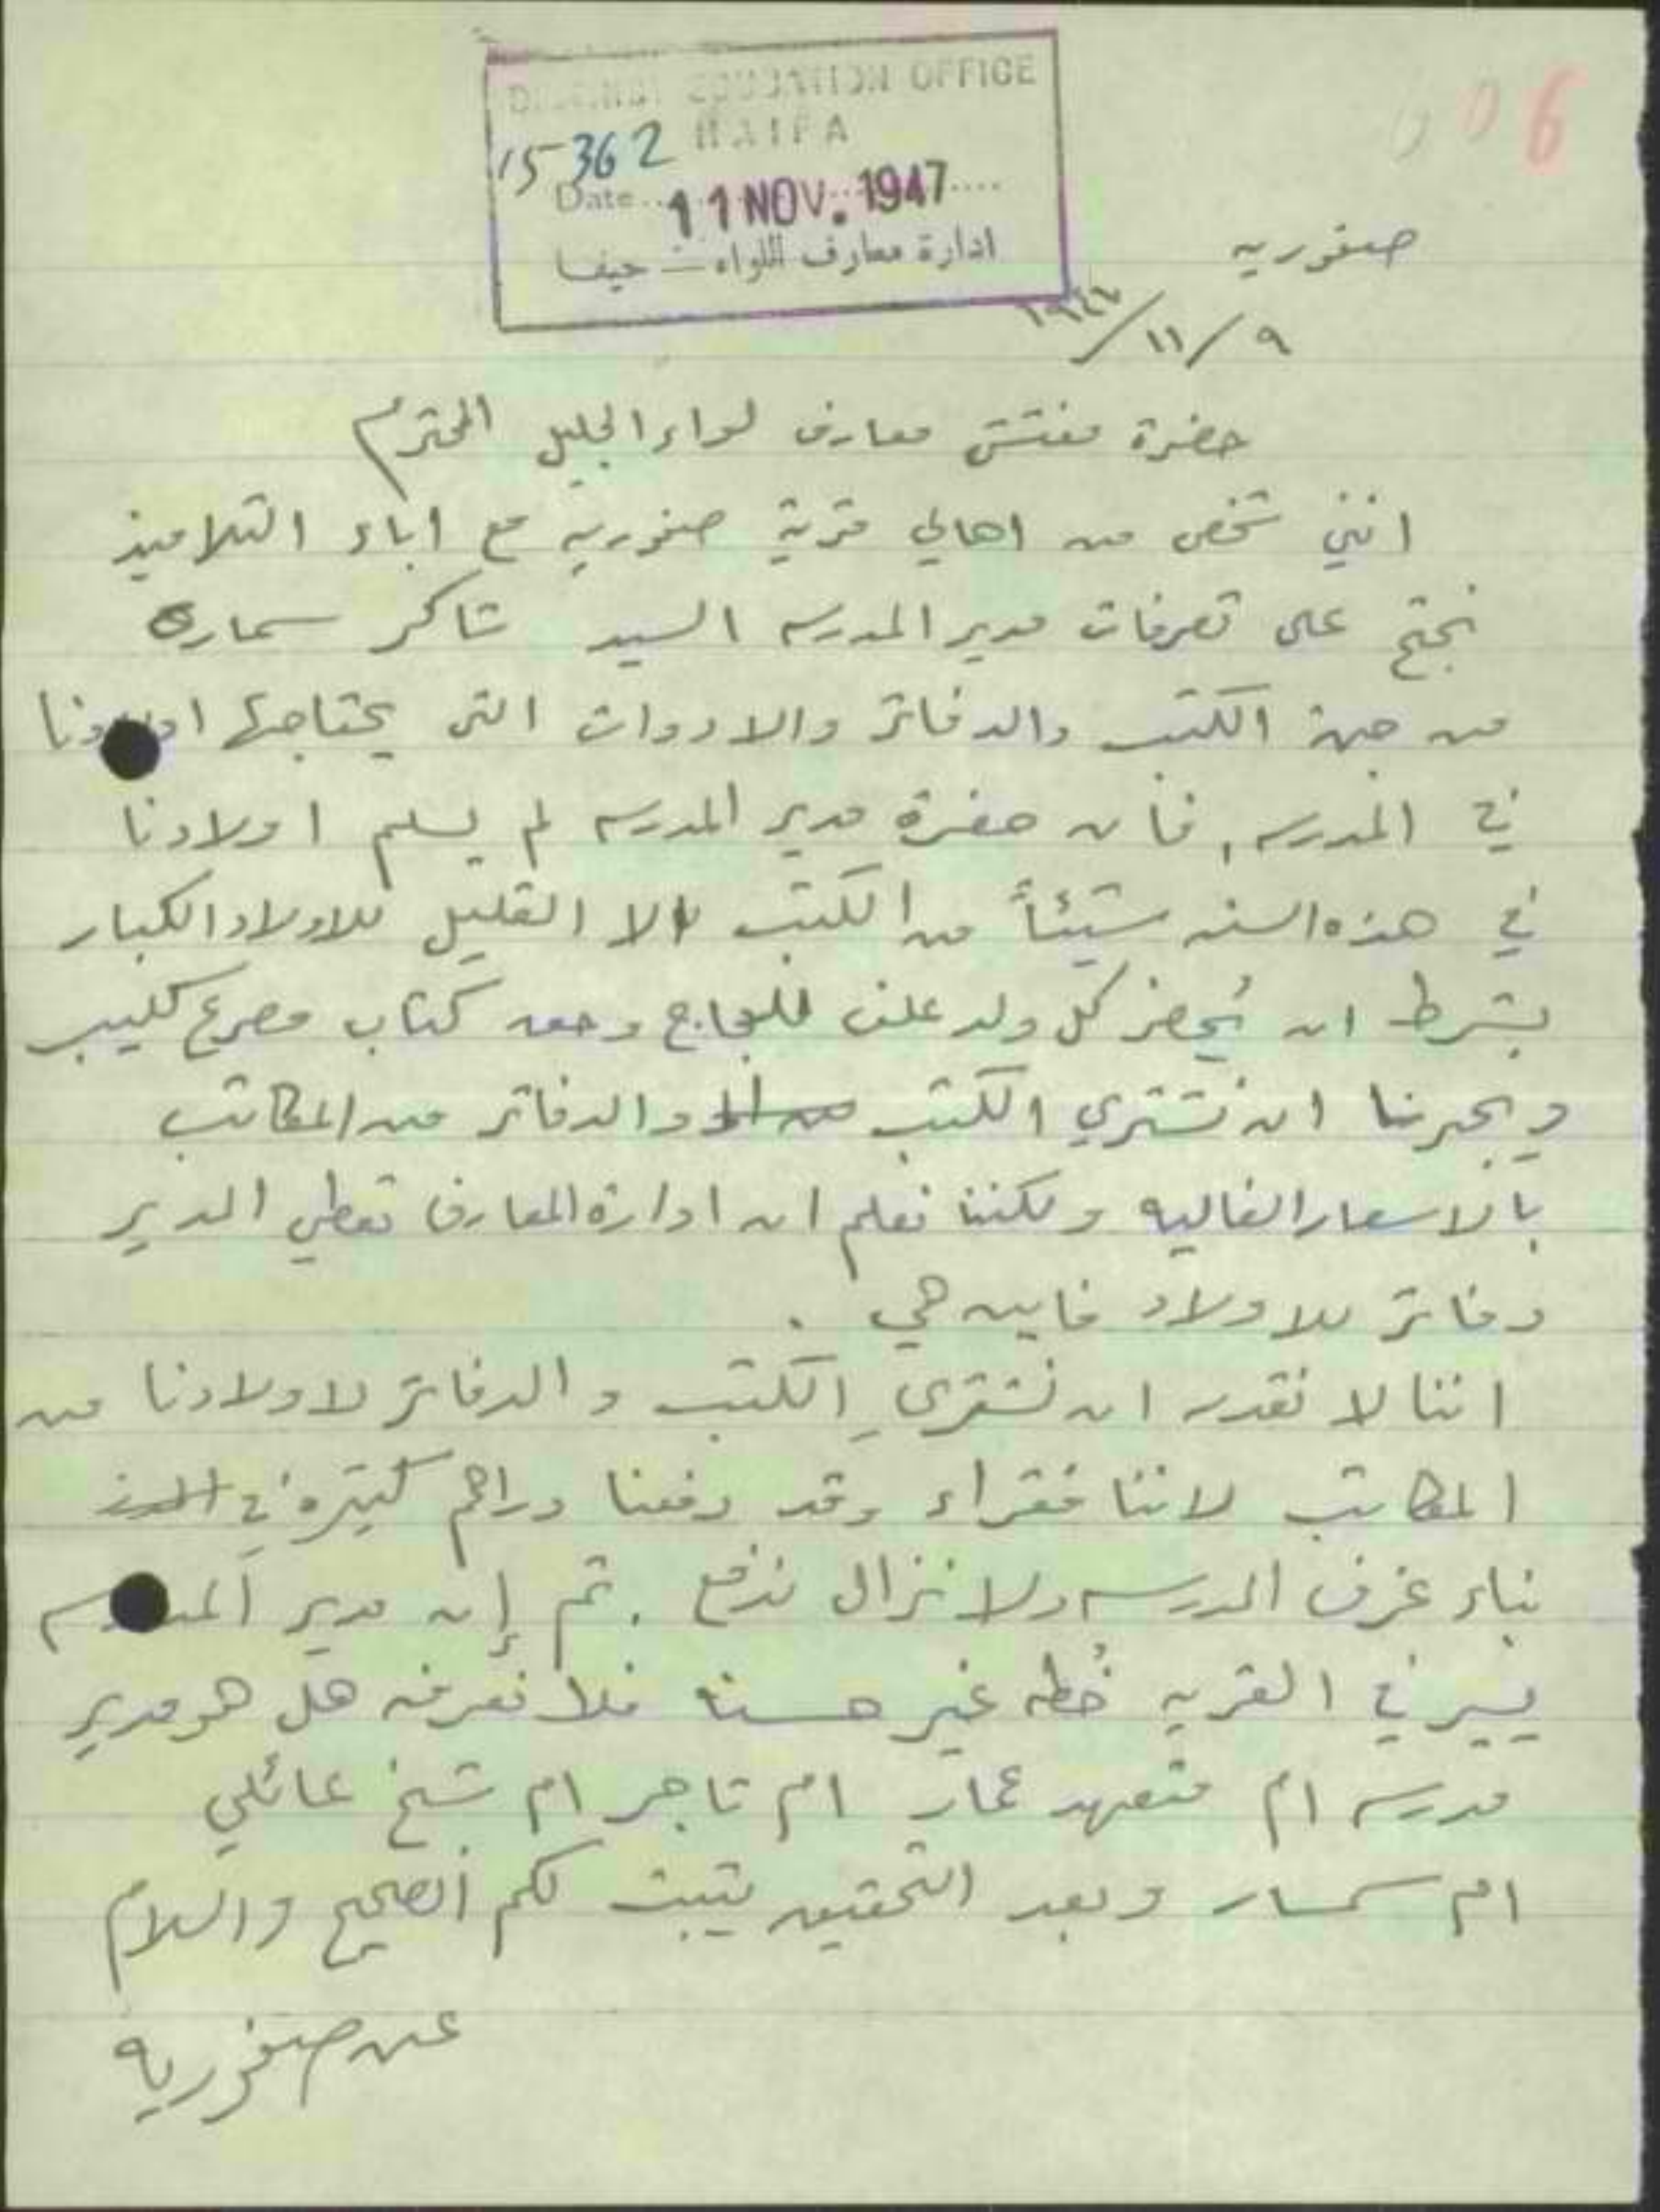 DISTRICT EDUCATION OFFICE
HAIFA
15362
Date 11 NOV. 1947
ادارة معارف اللواء - حيفا
006
صفوريه
٩/١١/١٩٤٧
حضرة مفتش معارف لواء الجليل المحترم
انني شخص من اهالي قرية صفوريه مع اباء التلاميذ
نحتج على تصرفات مدير المدرسه السيد شاكر سماره
من جهة الكتب والدفاتر والادوات التي يحتاجها اولادنا
في المدرسه، فان حضرة مدير المدرسه لم يسلم اولادنا
في هذه السنه شيئاً من الكتب الا القليل للاولاد الكبار
بشرط ان يُحضر كل ولد علف للجاج ومعه كتاب مصرع كليب
ويجبرنا ان نشتري الكتب والدفاتر من المكاتب
بالاسعار الغاليه ولكننا نعلم ان ادارة المعارف تعطي المدير
دفاتر للاولاد فاين هي .
اننا لا نقدر ان نشتري الكتب والدفاتر لاولادنا من
المكاتب لاننا فقراء وقد دفعنا دراهم كثيره في
بناء غرف المدرسه ولا نزال ندفع . ثم إن مدير المدرسه
يسير في القريه خُطه غير حسنه فلا نعرف هل هو مدير
مدرسه ام متعهد عمار ام تاجر ام شيخ عائلي
ام سمسار وبعد التحقيق يثبت لكم الصحيح والسلام
عن صفوريه